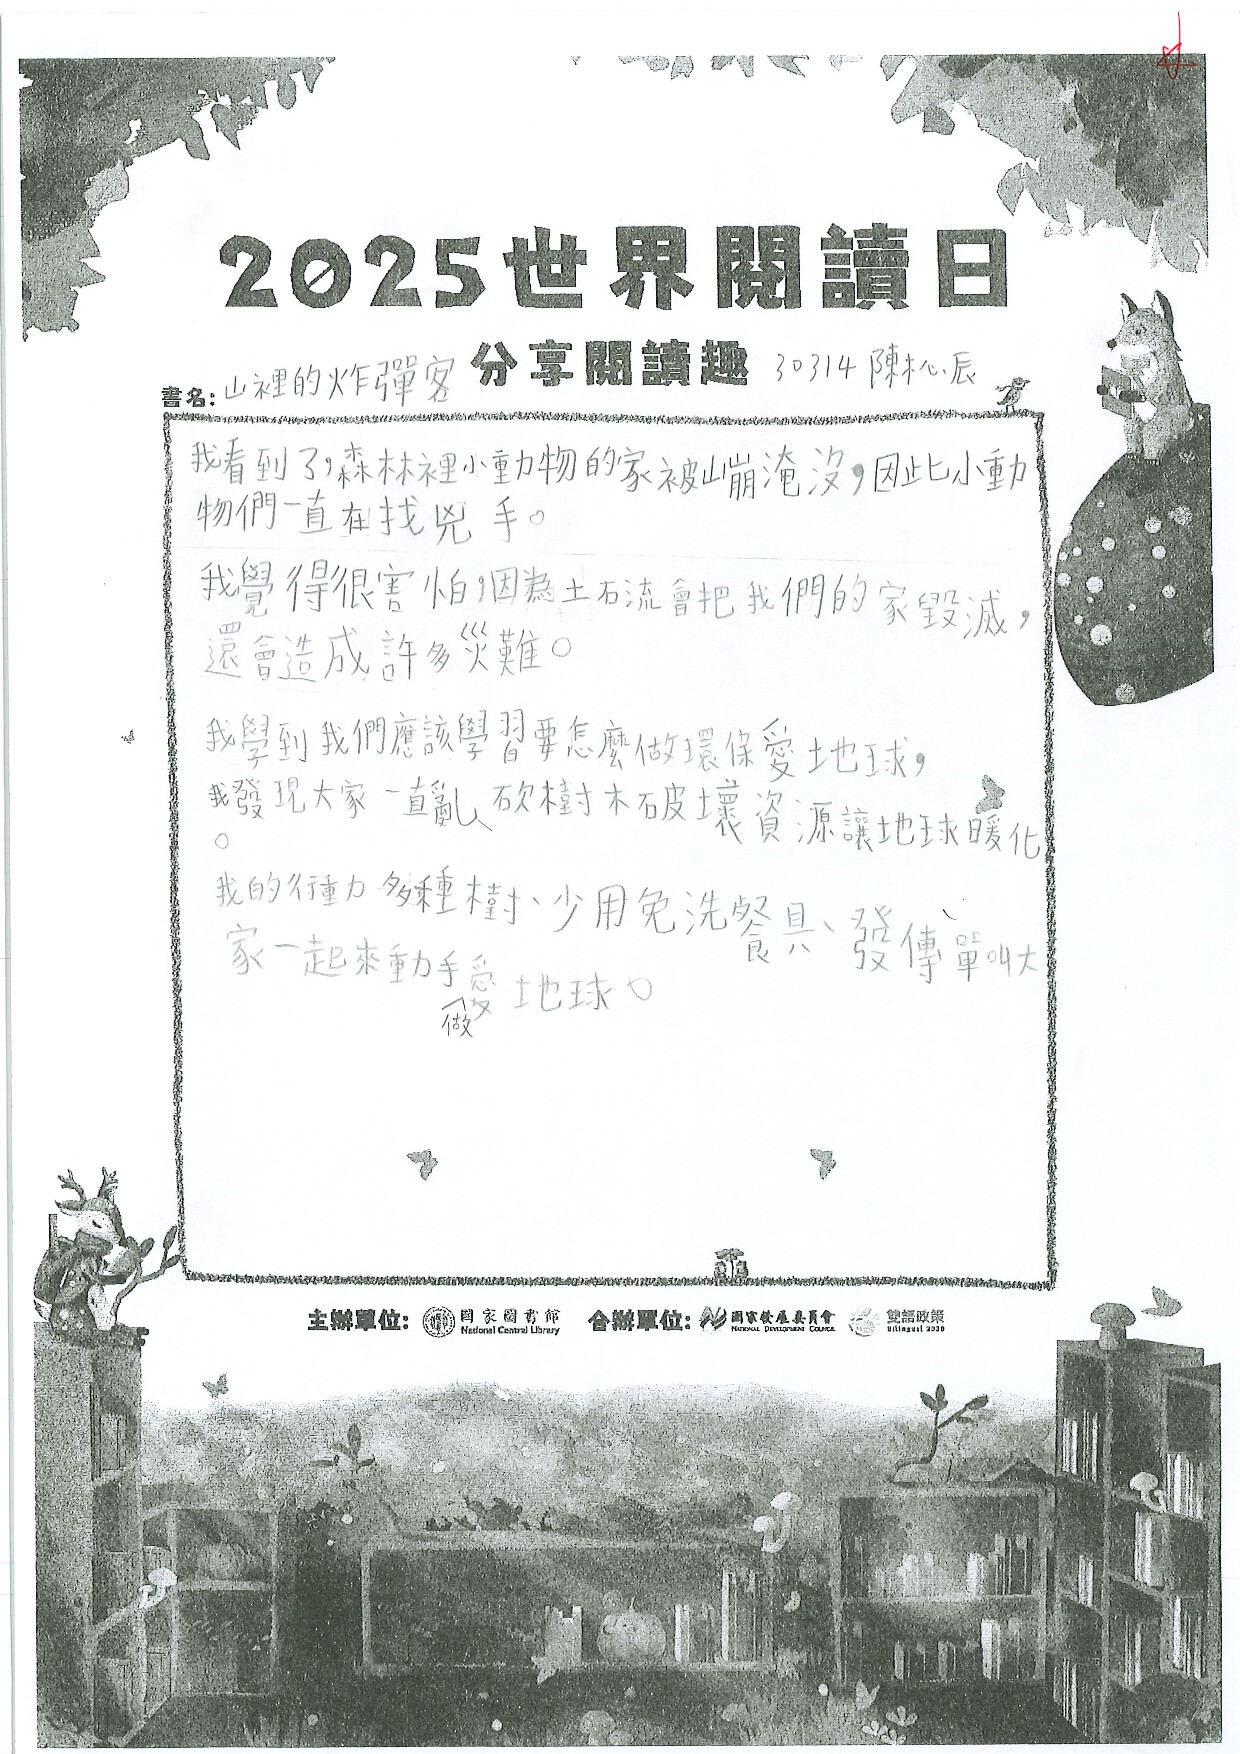 2025世界閱讀日
分享閱讀趣
30314 陳松辰
書名:山裡的炸彈客
我看到了,森林裡小動物的家被山崩淹沒,因此小動
物們一直在找兇手。
我覺得很害怕,因為土石流會把我們的家毀滅,
還會造成許多災難。
我學到我們應該學習要怎麼做環保愛地球,
我發現大家一直亂砍樹木破壞資源讓地球暖化
。
我的行動力多種樹、少用免洗餐具、發傳單叫大
家一起來動手愛地球。
做
主辦單位: 國家圖書館 National Central Library 合辦單位: 國家發展委員會 NATIONAL DEVELOPMENT COUNCIL 雙語政策 Bilingual 2030